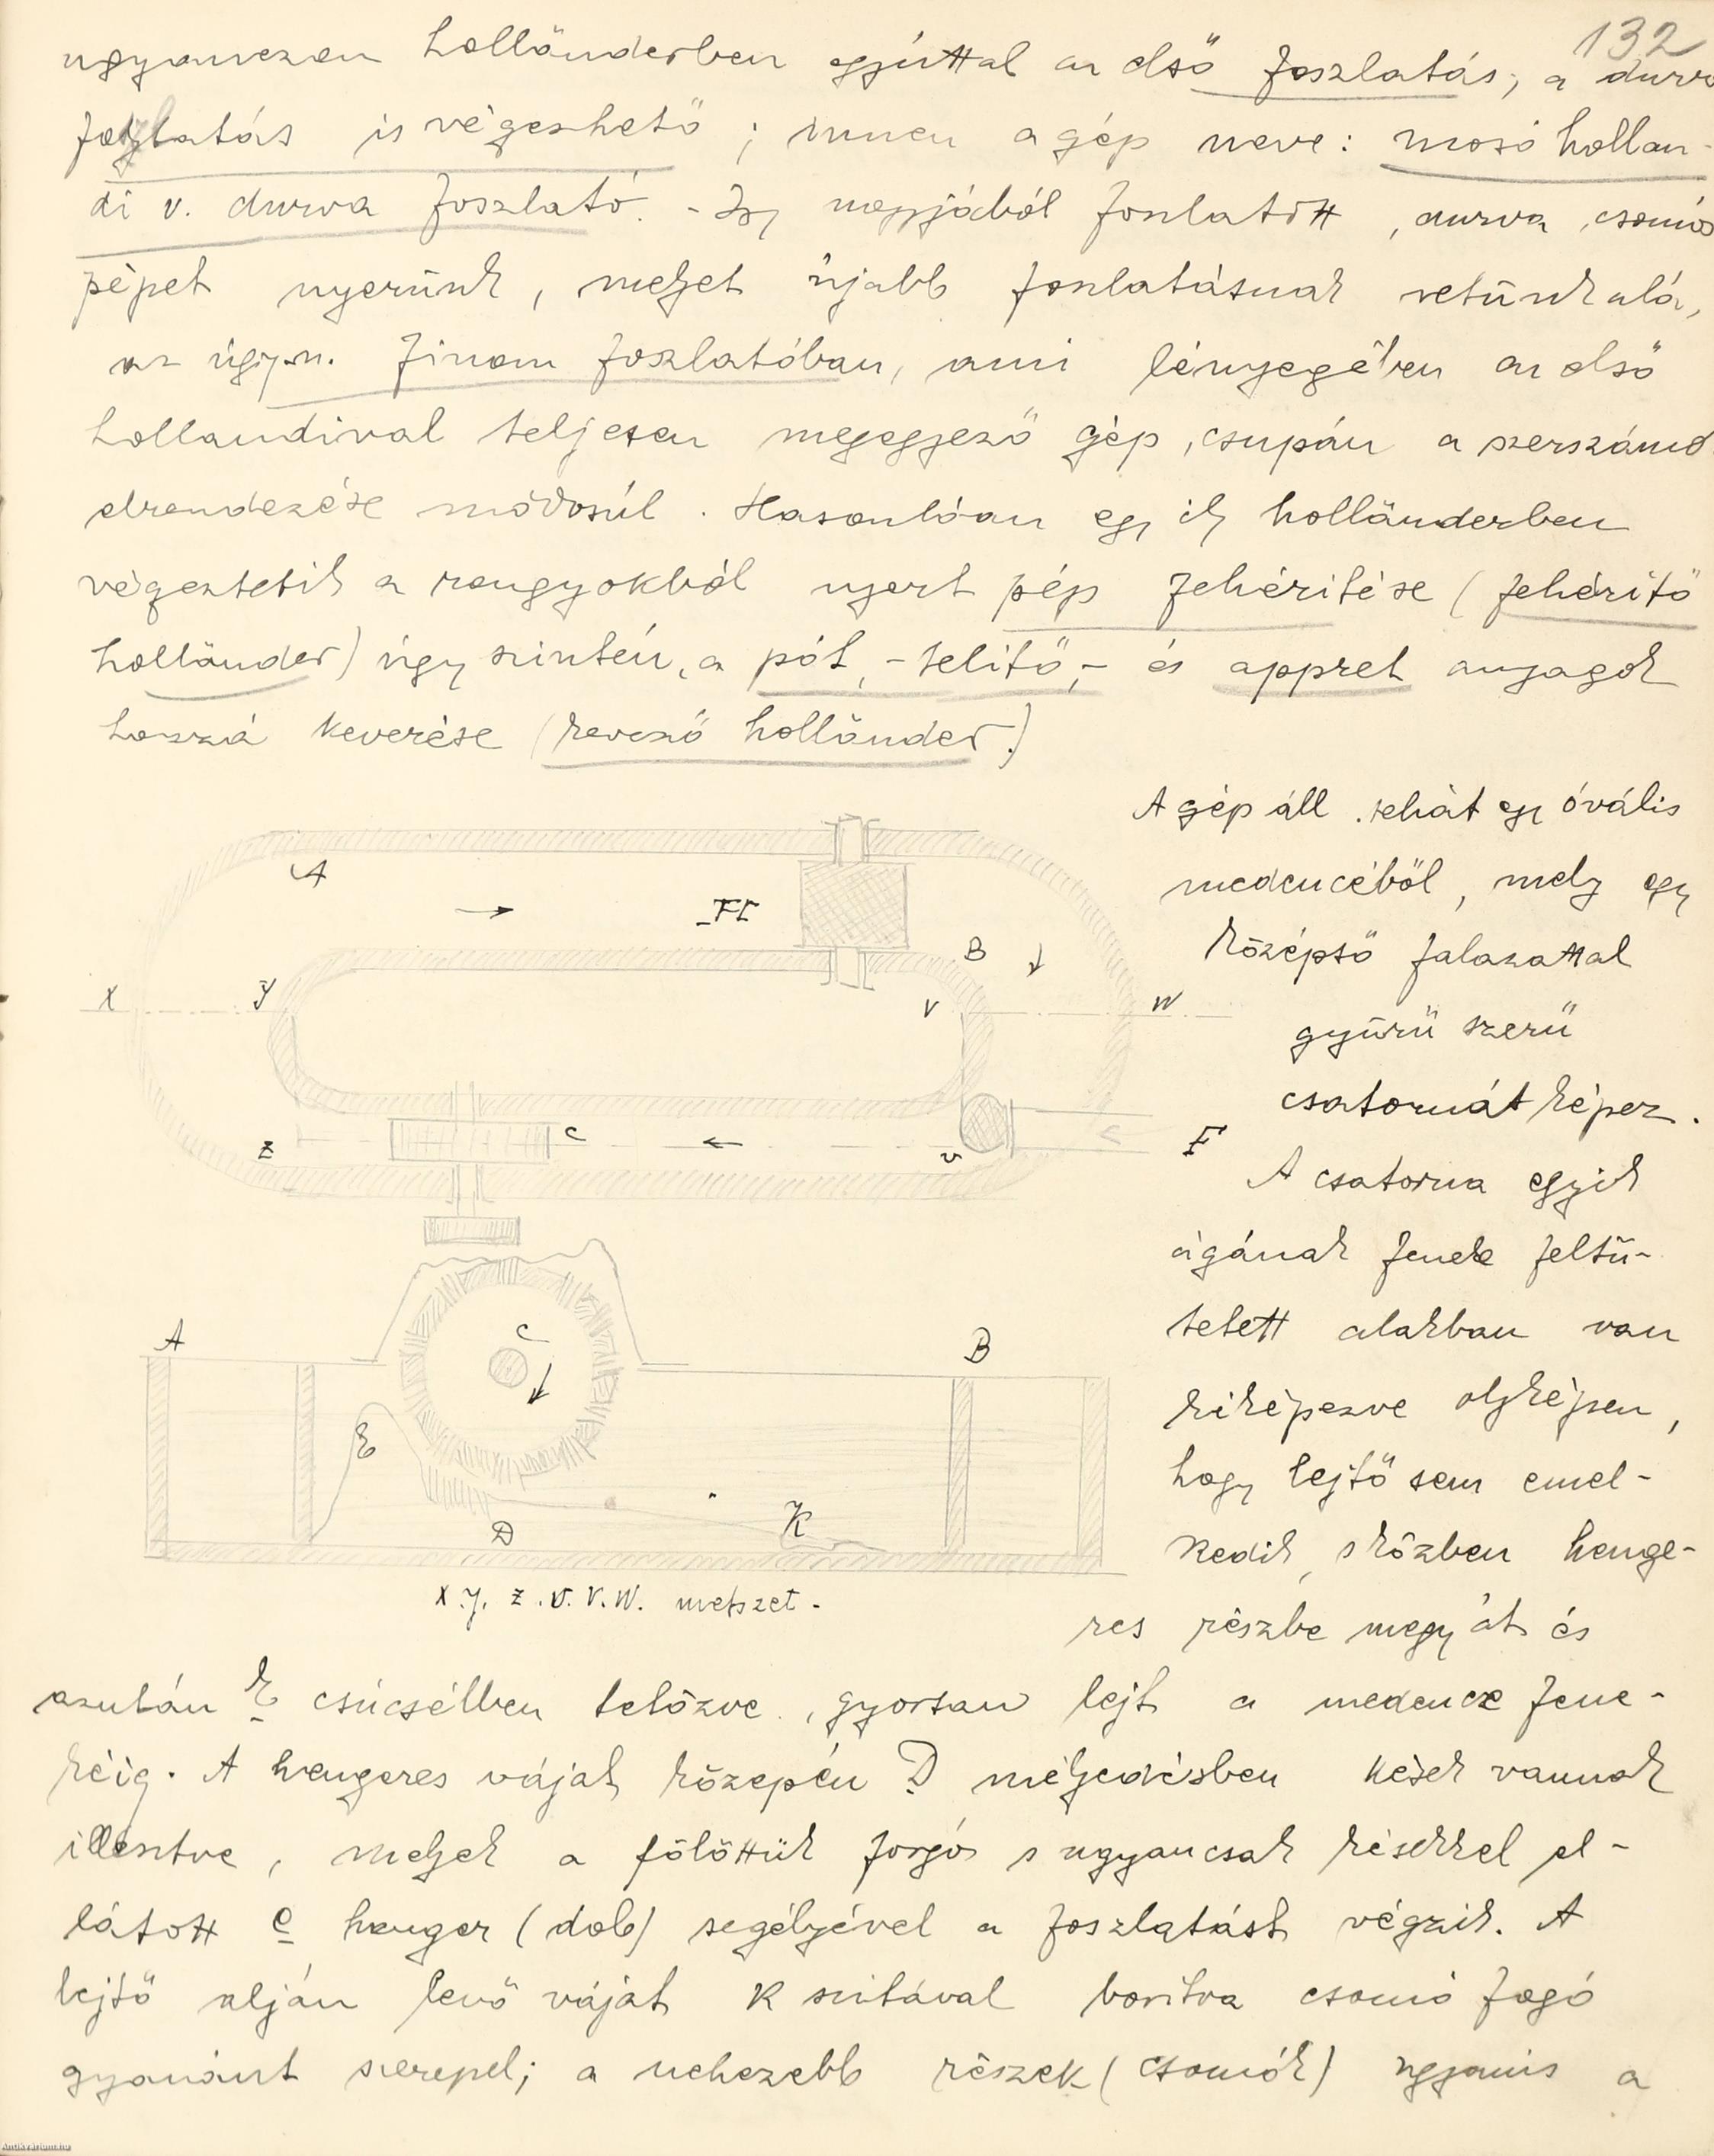 132
ugyanezen holländerben egyúttal az első foszlatás, a durva
foszlatás is végezhető; innen a gép neve: mosó hollan-
di v. durva foszlató. - Igy nagyjából foszlatott, durva, csomós
pépet nyerünk, melyet újabb foszlatásnak vetünk alá,
az úgyn. finom foszlatóban, ami lényegében az első
hollandival teljesen megegyező gép, csupán a szerszámok
elrendezése módosúl. Hasonlóan egy ily holländerben
végeztetik a rongyokból nyert pép fehéritése (fehéritő
holländer) úgy szintén, a pót, - telítő, - és appret anyagok
hozzá keverése (keverő holländer.)
A gép áll tehát egy óvális
medencéből, mely egy
középső falazattal
gyűrű szerű
csatornát képez.
A csatorna egyik
ágának feneke feltü-
tetett alakban van
kiképezve olyképen,
hogy lejtősen emel-
kedik, s közben henge-
res részbe megy át és
A
Fl
B
X
y
V
W
Z
C
v
F
A
C
B
E
D
K
X.y. Z.v.V.W. metszet.
azután E csúcsélben tetőzve, gyorsan lejt a medence fene-
kéig. A hengeres vájat közepén D mélyedésben kések vannak
illesztve, melyek a fölöttük forgó s ugyancsak késekkel el-
látott C henger (dob) segélyével a foszlatást végzik. A
lejtő alján levő vájat K szitával borítva csomó fogó
gyanánt szerepel; a nehezebb részek (csomók) ugyanis a
Antikvarium.hu